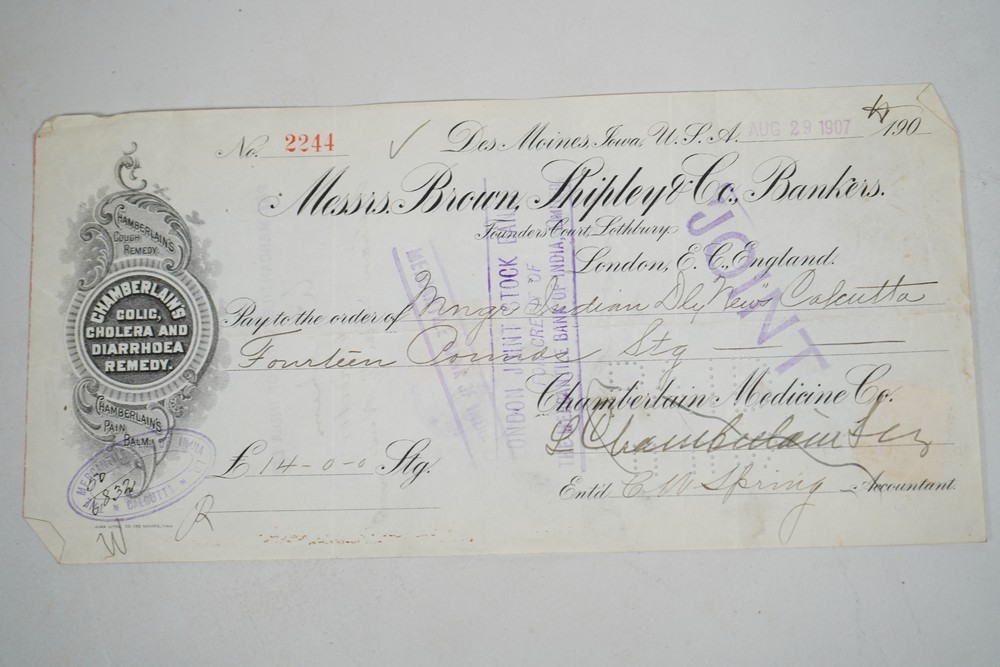 No. 2244
Des Moines, Iowa, U.S.A. AUG 29 1907 190
Messrs. Brown, Shipley & Co., Bankers.
Founders Court, Lothbury,
London, E.C., England.
Pay to the order of Mngr Indian Dly News Calcutta
Fourteen Pounds Stg
Chamberlain Medicine Co.
Chamberlain
£ 14-0-0 Stg.
Ent'd C W Spring Accountant.
CHAMBERLAIN'S
COUGH
REMEDY.
CHAMBERLAIN'S
COLIC,
CHOLERA AND
DIARRHOEA
REMEDY.
CHAMBERLAIN'S
PAIN
BALM.
LONDON JOINT STOCK BANK
CREDIT OF
THE MERCANTILE BANK OF INDIA,
JOINT
INDIA
CALCUTTA
W
R